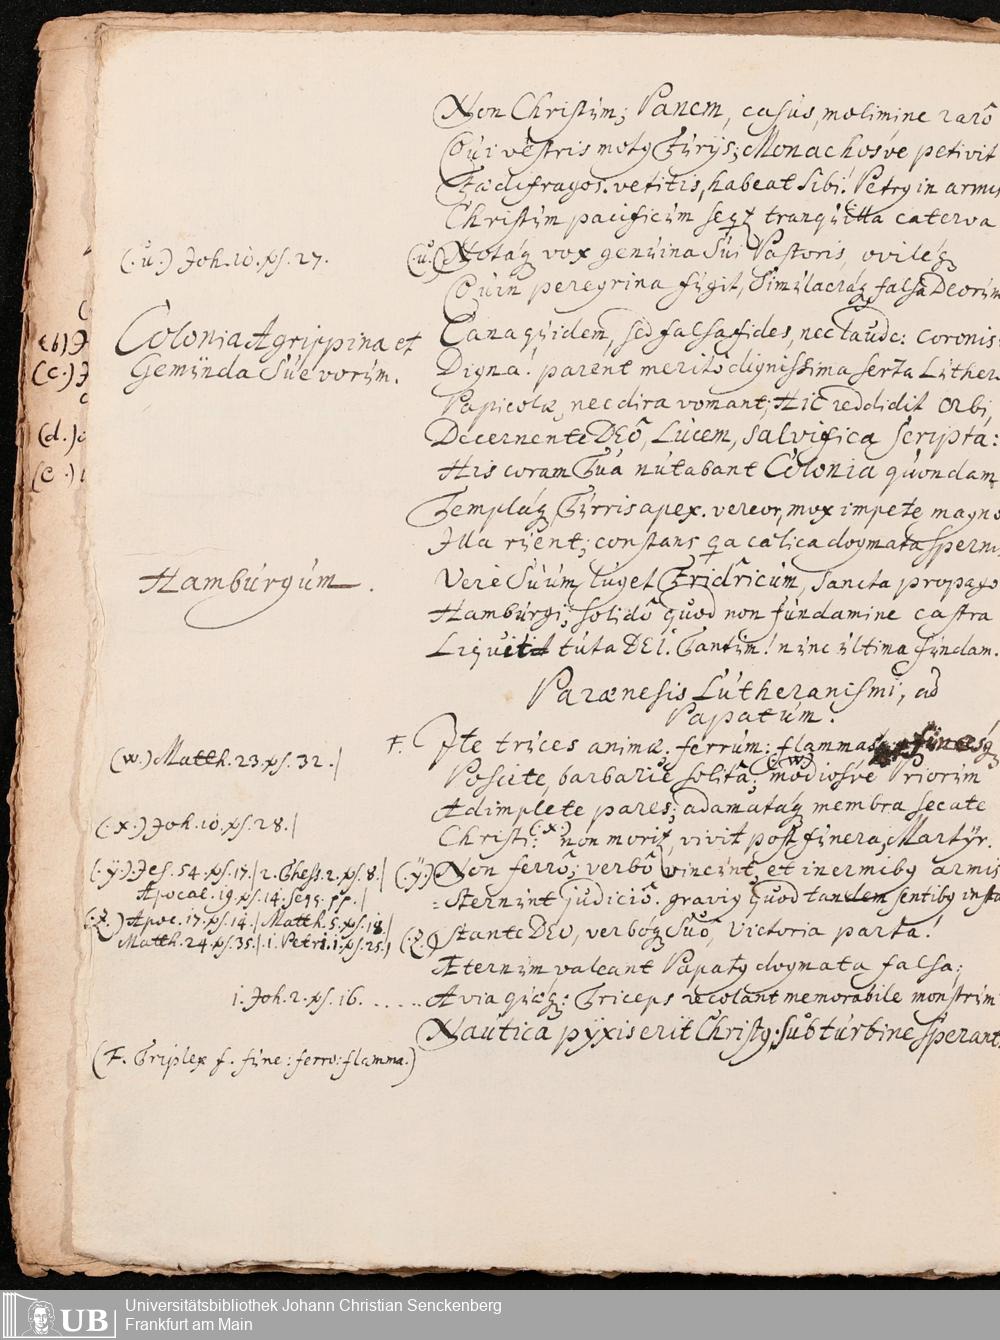 Non Christum; Panem, casus, molimine rarô
Qui vestris motus Furijs; Monachosve petivit
Fædifragos. vetitis, habeat sibi! Petrus in armis
Christum pacificum seqt tranquilla caterva
(.u.) Joh. 10. ps. 27.
(.u.) Notaq vox genuina Sui Pastoris, ovileq
Quin peregrina fugit, Simulacraq falsa Deorum
Colonia Agrippina et
Gemünda Suevorum.
Cana quidem, sed falsa fides, nec laude: coronis
Digna! parent meritò dignissima serta Luther
Papicolæ, nec dira vomant; Hic reddidit Orbi,
Decernente DEô, Lucem, salvifica scripta:
His coram Tua nutabant Colonia quondam
Templaq Turris apex. vereor, mox impete magno
Illa ruent; constans qa calica dogmata spernis
Hamburgum.
Verè Suum luget Fridricum, sancta propago
Hamburgi; solidô quod non fundamine castra
Liquit tuta DEI. Tantum! nunc ultima fundam.
Parænesis Lutheranismi, ad
Papatum.
F. Ite truces animæ. ferrum: flammas funesq
(w.) Matth. 23. ps. 32. |
Poscite, barbarie solitâ; (w) modiosve Priorum
Adimplete pares; adamataq membra secate
(.x.) Joh. 10. ps. 28. |
Christi: (.x.) non morit, vivit post funera, Martyr.
(.y.) Jes. 54. ps. 17. | 2. Thess. 2. ps. 8. |
Apocal. 19. ps. 14. seqq. pp. |
(.y.) Non ferrô; verbô vincunt, et inermibus armis
=Sternunt judiciô. gravius quod tandem sentibus insta
(.z.) Apoc. 17. ps. 14. | Matth. 5. ps. 18. |
Matth. 24. ps. 35. | 1. Petri. 1. ps. 25. |
(.z.) stante DEO, verboq Suô, Victoria parta!
Æternum valeant Papatus dogmata falsa;
1. Joh. 2. ps. 16. . . . . .
Avia quæq: Triceps recolant memorabile monstrum
Nautica pyxis erit Christus. sub turbine sperant.
(F. Triplex f. fune: ferro: flamma.)
(b)
(c.)
(d.)
(e.)
UB
Universitätsbibliothek Johann Christian Senckenberg
Frankfurt am Main